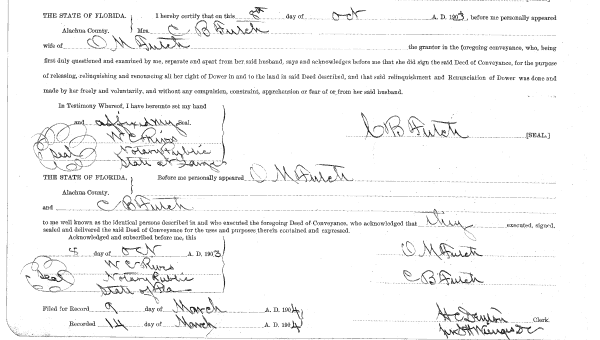 THE STATE OF FLORIDA. I hereby certify that on this 8th day of Oct A. D. 1903, before me personally appeared
Alachua County. Mrs. C B Futch
wife of O M Futch the grantor in the foregoing conveyance, who, being
first duly questioned and examined by me, separate and apart from her said husband, says and acknowledges before me that she did sign the said Deed of Conveyance, for the purpose
of releasing, relinquishing and renouncing all her right of Dower in and to the land in said Deed described, and that said relinquishment and Renunciation of Dower was done and
made by her freely and voluntarily, and without any compulsion, constraint, apprehension or fear of or from her said husband.
In Testimony Whereof, I have hereunto set my hand
and affixed my Seal. C B Futch [SEAL.]
W C Rives
Seal Notary Public
State at Large
THE STATE OF FLORIDA. Before me personally appeared O M Futch
Alachua County.
and C B Futch
to me well known as the identical persons described in and who executed the foregoing Deed of Conveyance, who acknowledged that they executed, signed,
sealed and delivered the said Deed of Conveyance for the uses and purposes therein contained and expressed.
Acknowledged and subscribed before me, this
8 day of Oct A. D. 1903 O M Futch
W C Rives
Seal Notary Public C B Futch
State of Fla
Filed for Record 9 day of March A. D. 1904
Recorded 14 day of March A. D. 1904 Clerk.